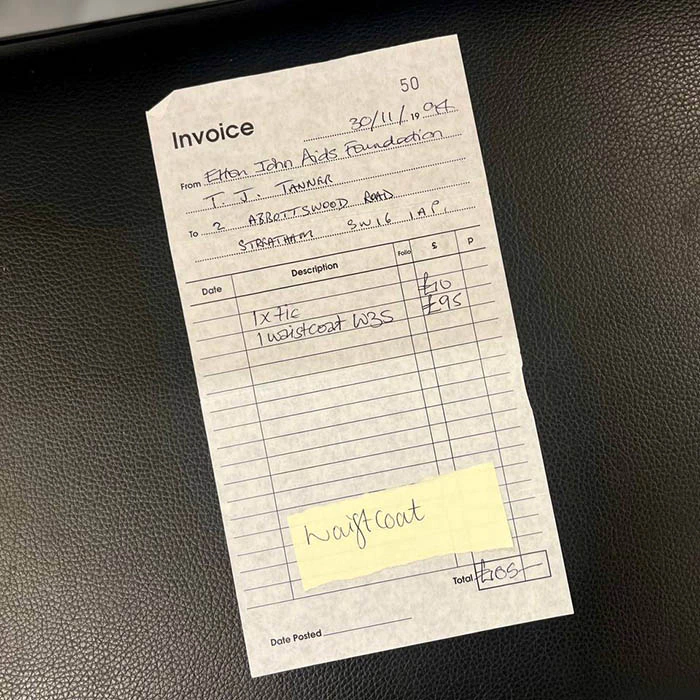 50
Invoice
30/11/1994
From Elton John Aids Foundation
T. J. TANNER
To 2 ABBOTTSWOOD ROAD
STREATHAM SW16 1AP.
Date Description Folio £ P
1 x tie £10
1 waistcoat W35 £95
waistcoat
Total £105-
Date Posted